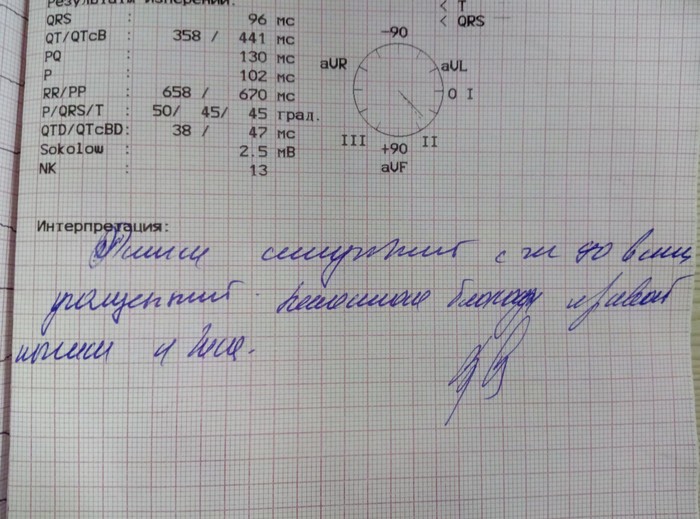 Результаты измерений:
< T
< QRS
QRS : 96 мс
QT/QTcB : 358 / 441 мс
PQ : 130 мс
P : 102 мс
RR/PP : 658 / 670 мс
P/QRS/T : 50/ 45/ 45 град.
QTD/QTcBD: 38 / 47 мс
Sokolow : 2.5 мВ
NK : 13
-90
aVR aVL
0 I
III II
+90
aVF
Интерпретация:
Ритм синусовый с 90 в мин
Неполная блокада правой
ножки п Гиса.